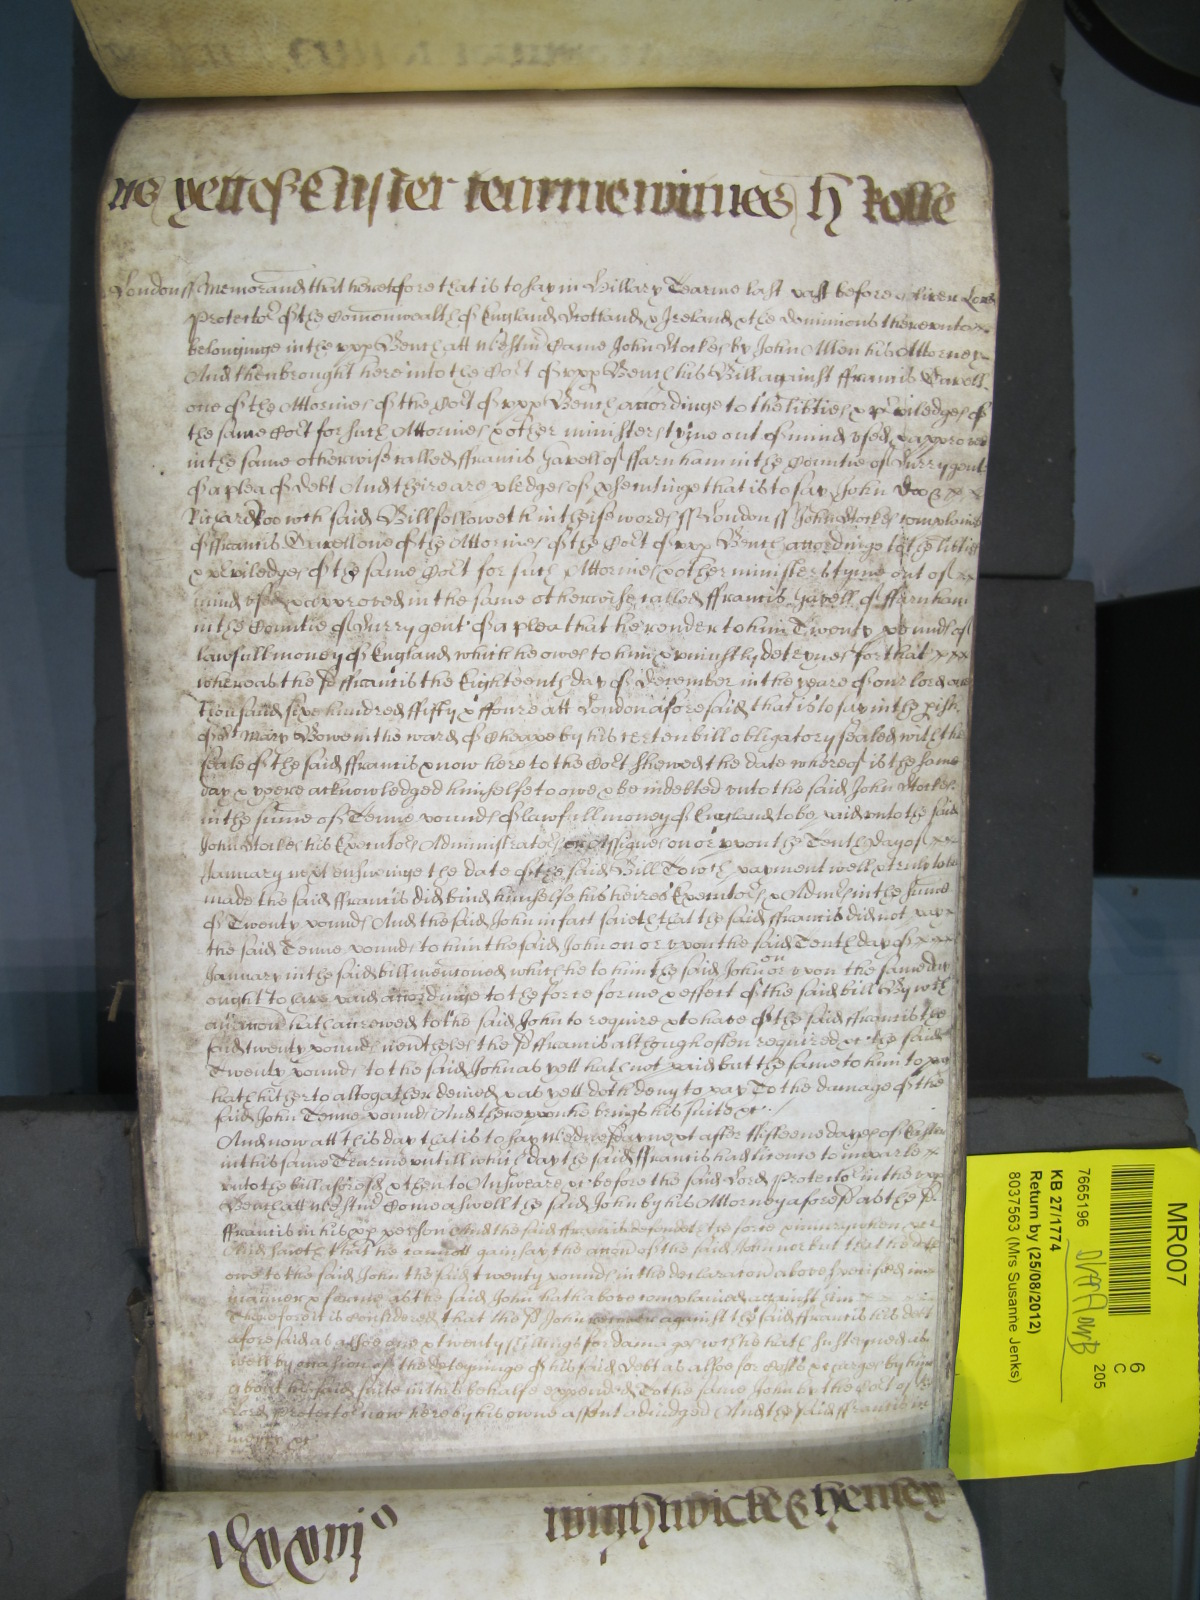 yett of Easter tearme witnes H Rolle
London ss Memorand that heretofore that is to say in Hillary Tearme last past before Oliver Lord
Protector of the Comonwealth of England Scotland & Ireland & the dominions thereunto
belonginge in the upp Bench att Westm Came John Stockes by John Allen his Attorney
And then brought here into the Cort of upp Bench his Bill against ffrancis
one of the Attornies of the Cort of upp Bench accordinge to the libties & priviledges of
the same Cort for such Attornies & other ministers tyme out of mind used & approved
in the same otherwise called ffrancis of ffarnham in the Countie of Surry gent
of a plea of debt And there are pledges of psentinge that is to say John Doo &
Richard Roo wch said Bill followeth in theise words ss London ss John Stockes complaines
of ffrancis one of the Attornies of the Cort of upp Bench accordinge to the libties
& priviledges of the same Cort for such Attornies & other ministers tyme out of
mind used & approved in the same otherwise called ffrancis of ffarnham
in the Countie of Surry gent of a plea that he render to him Twenty pounds of
lawfull money of England which he owes to him & uniustly deteynes for that
whereas the sd ffrancis the Eighteenth day of December in the yeare of our lord one
Thousand six hundred ffifty & ffoure att London aforesaid that is to say in the pish
of St Mary Bowe in the ward of Cheape by his certen bill obligatory sealed with the
seale of the said ffrancis & now here to the Cort shewed the date whereof is the same
day & yeere acknowledged himselfe to owe & be indebted unto the said John Stockes
in the sume of Tenne pounds of lawfull money of England to be paid unto the said
John Stockes his Executors Administrators or Assignes on or upon the Tenth day of
January next ensueinge the date of the said Bill To wch payment well & truly to be
made the said ffrancis did bind himselfe his heires Executors & Adminrs in the sume
of Twenty pounds And the said John in fact saieth that the said ffrancis did not pay
the said Tenne pounds to him the said John on or upon the said Tenth day of
January in the said bill menconed which he to him the said John on or upon the same day
ought to have paid accordinge to the force forme & effect of the said bill By wch
an accon hath accrewed to the said John to require & to have of the said ffrancis the
said twenty pounds neverthelesse the sd ffrancis although often required &c the said
Twenty pounds to the said John as yett hath not paid but the same to him to pay
hath hitherto altogather denied & as yett doth deny to pay To the damage of the
said John Tenne pounds And thereupon he brings his suite &c
And now att this day that is to say Wednesday next after ffifteene dayes of Easter
in this same Tearme untill which day the said ffrancis had licence to imparle
unto the bill aforesd & then to Answeare &c before the said Lord Protector in the upp
Bench att Westm Come aswell the said John by his Attorney aforesd as the sd
ffrancis in his pp person And the said ffrancis defendeth the force & iniury when &c
And saieth that he cannott gainsay the accon of the said John nor but that he doth
owe to the said John the said twenty pounds in the declaracon above specified in
manner & forme as the said John hath above complained against him
Therefore it is considered that the sd John recover against the said ffrancis his debt
aforesaid as alsoe one & twenty shillings for damages wch he hath susteyned as
well by occasion of the deteyninge of his said debt as alsoe for costs & charges by him
about his said suite in this behalfe expended To the same John by the Cort of the
Lord Protector now here by his owne assent adiudged And the said ffrancis in
mercy &c
wightwicke & henley
MR007
6
C
205
7665196
KB 27/1774
Return by (25/08/2012)
8037563 (Mrs Susanne Jenks)